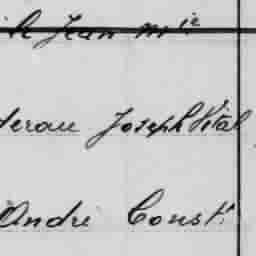 k Jean Mie
terau Joseph Vital
André Const.